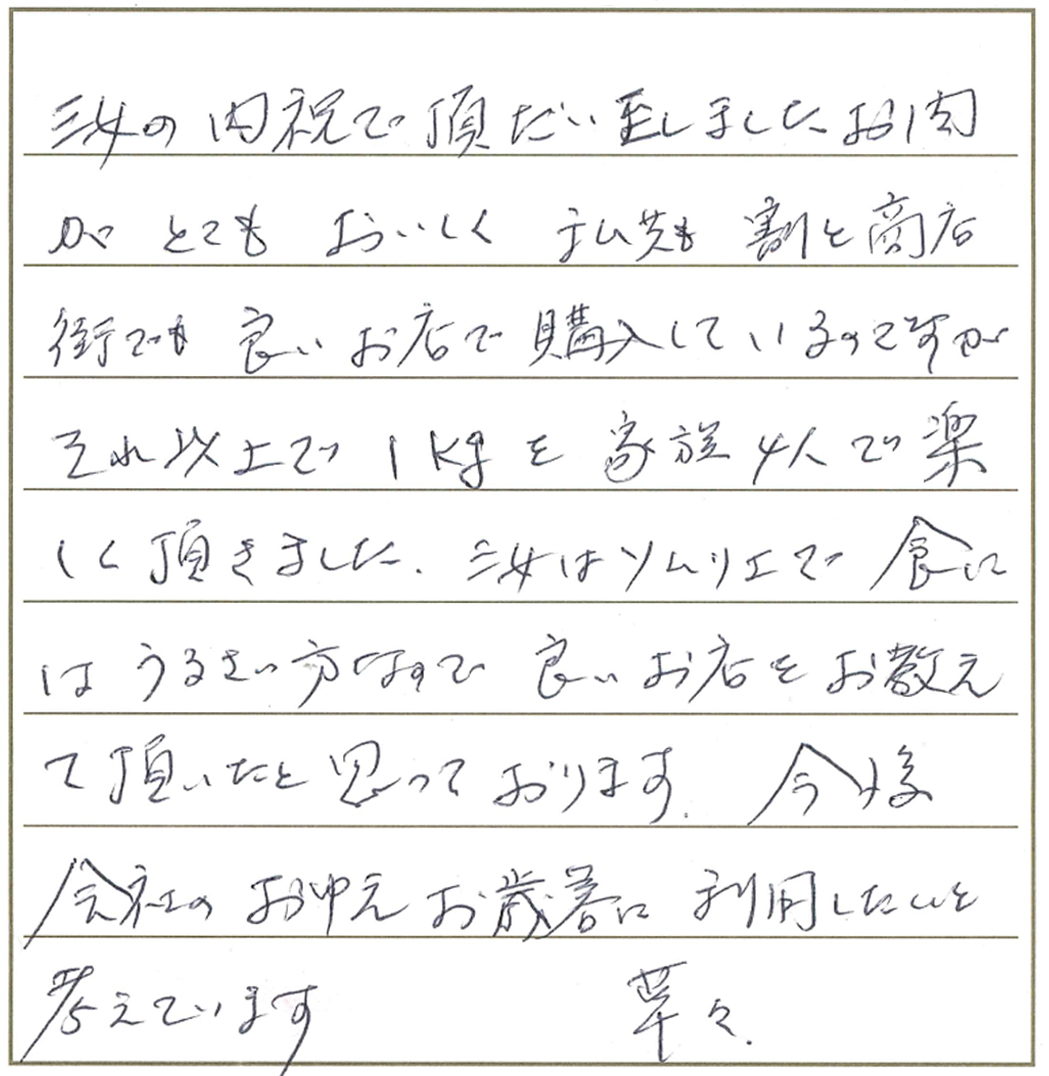 三女の内祝で頂だい致しましたお肉
がとてもおいしく私共も割と商店
街でも良いお店で購入しているのですが
それ以上で1kgを家族4人で楽
しく頂きました。三女はソムリエで食に
はうるさい方なので良いお店をお教え
て頂いたと思っております。今後
会社のお中え お歳暮に利用したいと
考えています 草々.